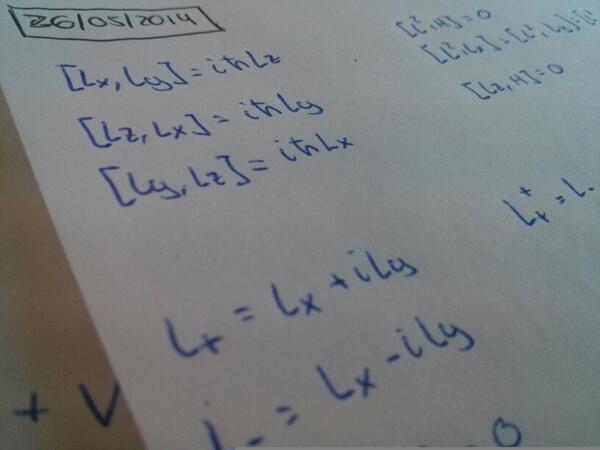 26/05/2014
[Lx, Ly] = iħLz
[Lz, Lx] = iħLy
[Ly, Lz] = iħLx
[L², H] = 0
[L², Lx] = [L², Ly] = [L²
[Lz, H] = 0
L₊⁺ = L₋
L₊ = Lx + iLy
L₋ = Lx - iLy
+ V
0